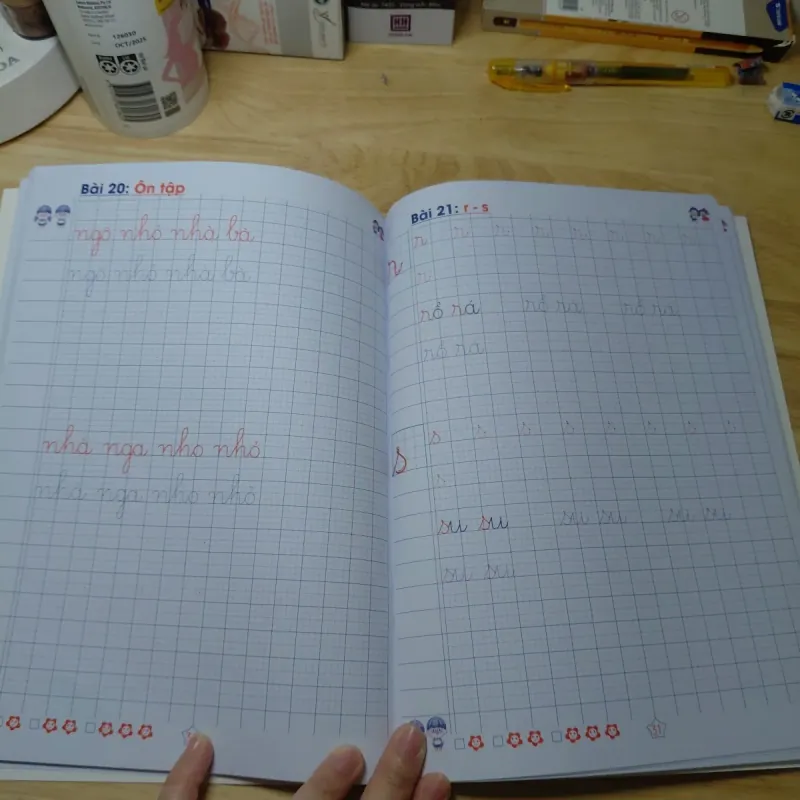 128010
OCT/2025
Bài 20: Ôn tập
ngõ nhỏ nhà bà
ngõ nhỏ nhà bà
nhà nga nho nhỏ
nhà nga nho nhỏ
Bài 21: r - s
r
r r r r r r r r
r
rổ rá rổ rá rổ rá
rổ rá
s
s s s s s s s s
s
su su su su su su
su su
11